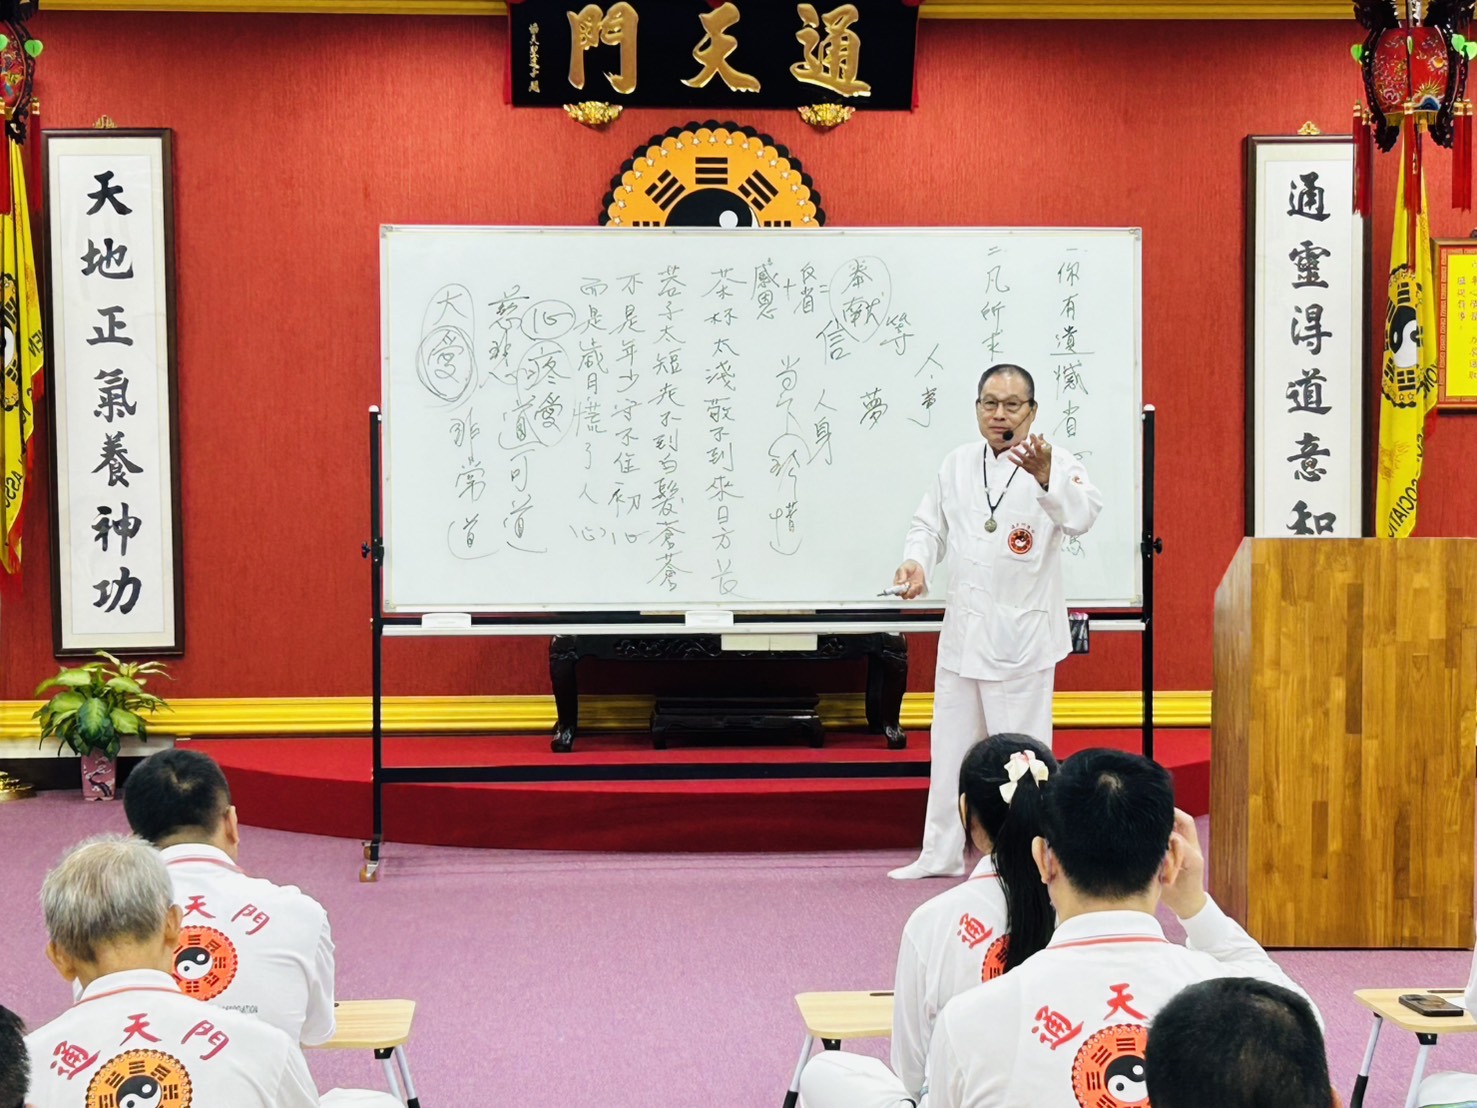 通天門
通靈得道意知
天地正氣養神功
一.你有遺憾省
二.凡所求
人.事
等
夢
奉獻
信
人身
反省=
+
感恩
當下珍惜
茶杯太淺敬不到來日方長
若子太短走不到白髮蒼蒼
不是年少守不住初心
而是歲月慌了人心
心疼愛
慈悲
道可道
大愛
非常道
天門
通天門
通
通天